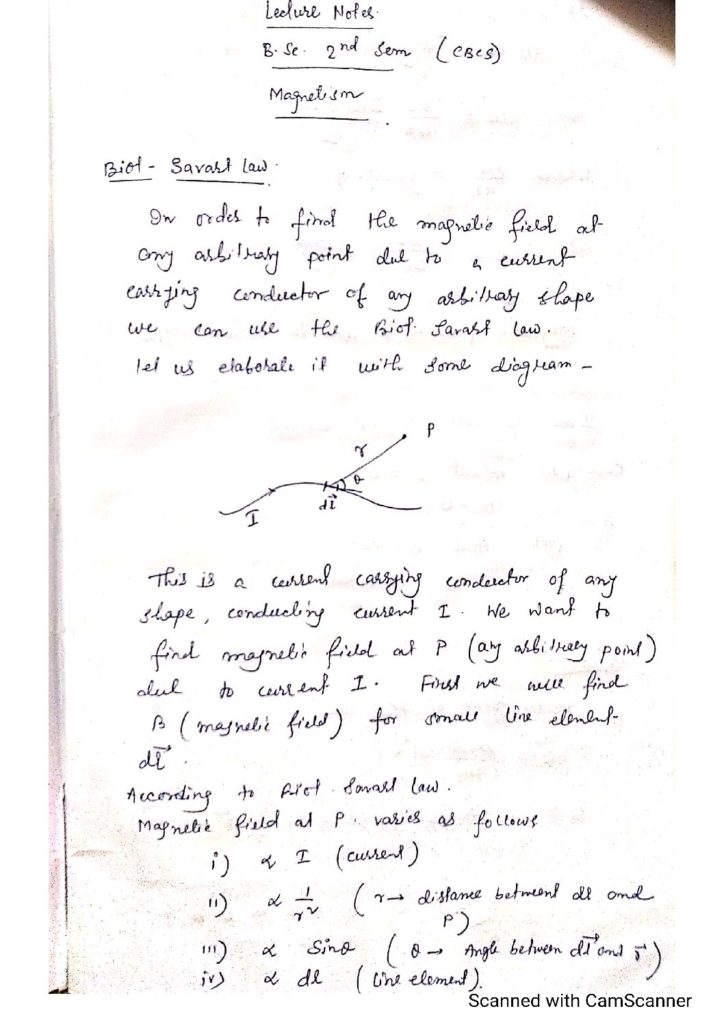 Lecture Notes.
B.Sc. 2nd Sem (CBCS)
Magnetism
Biot - Savart law.
In order to find the magnetic field at
any arbitrary point due to a current
carrying conductor of any arbitrary shape
we can use the Biot Savart law.
let us elaborate it with some diagram -
P
r
θ
dl⃗
I
This is a current carrying conductor of any
shape, conducting current I. We want to
find magnetic field at P (any arbitrary point)
due to current I. First we will find
B (magnetic field) for small line element
dl⃗.
According to Biot Savart law.
Magnetic field at P. varies as follows
i) ∝ I (current)
ii) ∝ 1/r² (r → distance between dl and
P)
iii) ∝ Sinθ (θ → Angle between dl⃗ and r⃗)
iv) ∝ dl (line element).
Scanned with CamScanner